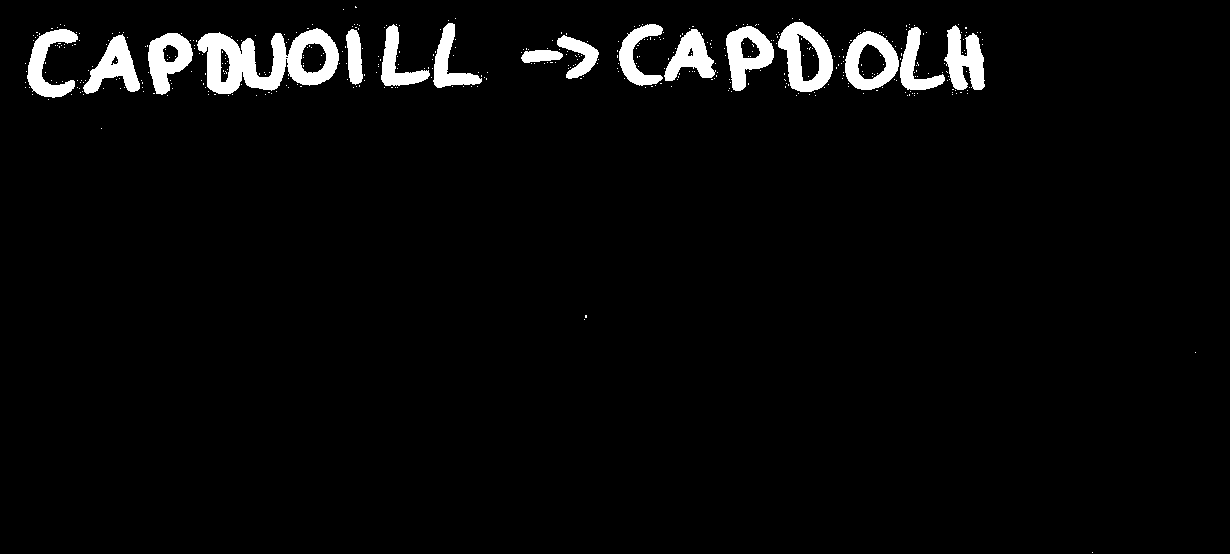 CAPDUOILL -> CAPDOLH